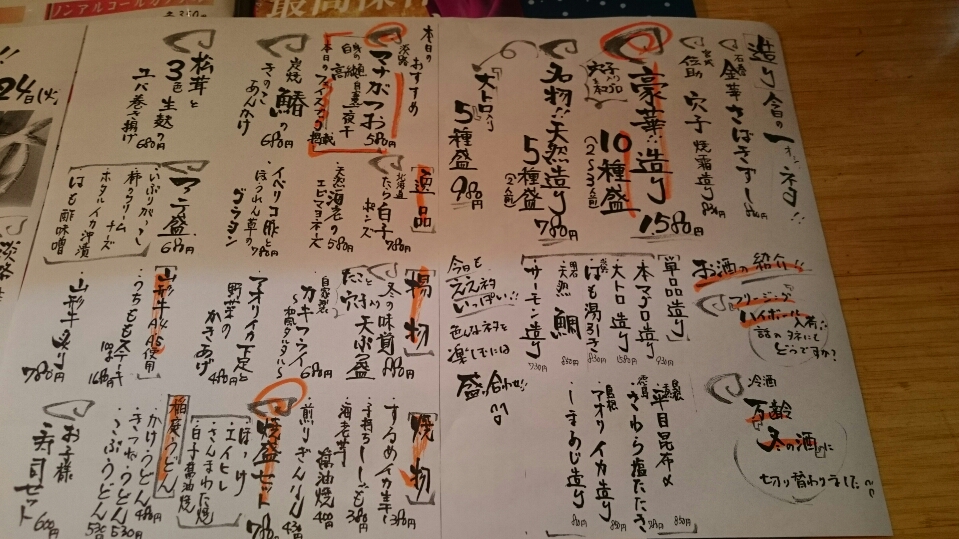 造り 今日の一オシネタ!!
石巻 金華さばきずし
炭火 信助 穴子 焼霜造り
豪華!! 造り
10種盛
(2〜3人前)
1580円
名物!! 天然造り
5種盛
(2人前)
780円
大トロ入り
5種盛 980円
お酒の紹介!!
フリージング
ハイボール 入荷!!
話のネタにも
どうですか?
冷酒
万齢
冬の酒に
切り替わりました
[単品造り]
本マグロ造り 930円
大トロ造り 1580円
はも湯引き 830円
天然 鯛 830円
サーモン造り 730円
島根 平目昆布〆 830円
徳島 さわら塩たたき 780円
島根 アオリイカ造り
しまあじ造り
今日も
ええネタ
いっぱい!!
色んなネタを
楽しむには
盛り合わせ!!
本日の
おすすめ
淡路
マナガつお 580円
本日のフェイスブック掲載
炭焼 鰆の
きのこあんかけ 680円
松茸と
3色生麩の
ユバ巻き揚げ 680円
[逸品]
北海道 たら白子ポンズ 780円
・天然海老の
エビマヨネーズ 580円
・イベリコ豚と
ほうれん草の
グラタン
アテ盛 680円
・いぶりがっこ
・柿クリームチーズ
・ホタルイカ沖漬
・はも酢味噌
[揚物]
冬の味覚
たことり
穴子 天ぷら盛 980円
自家製
カキフライ
〜和風タルタル〜 680円
・アオリイカ下足と
野菜の
かきあげ 480円
[山形牛A4A5使用]
・うちももステーキ 1680円
・山形牛炙り 780円
[焼物]
・するめイカ生干し 380円
・子持ちししゃも 380円
・煎りぎんなん 430円
焼盛セット 780円
・ほっけ
・エイヒレ
・さんまわた焼
・白子醤油焼
[稲庭うどん]
かけうどん 480円
・きつねうどん 530円
・こぶうどん 530円
お子様
寿司セット 600円
24日(火)
ノンアルコールカクテル